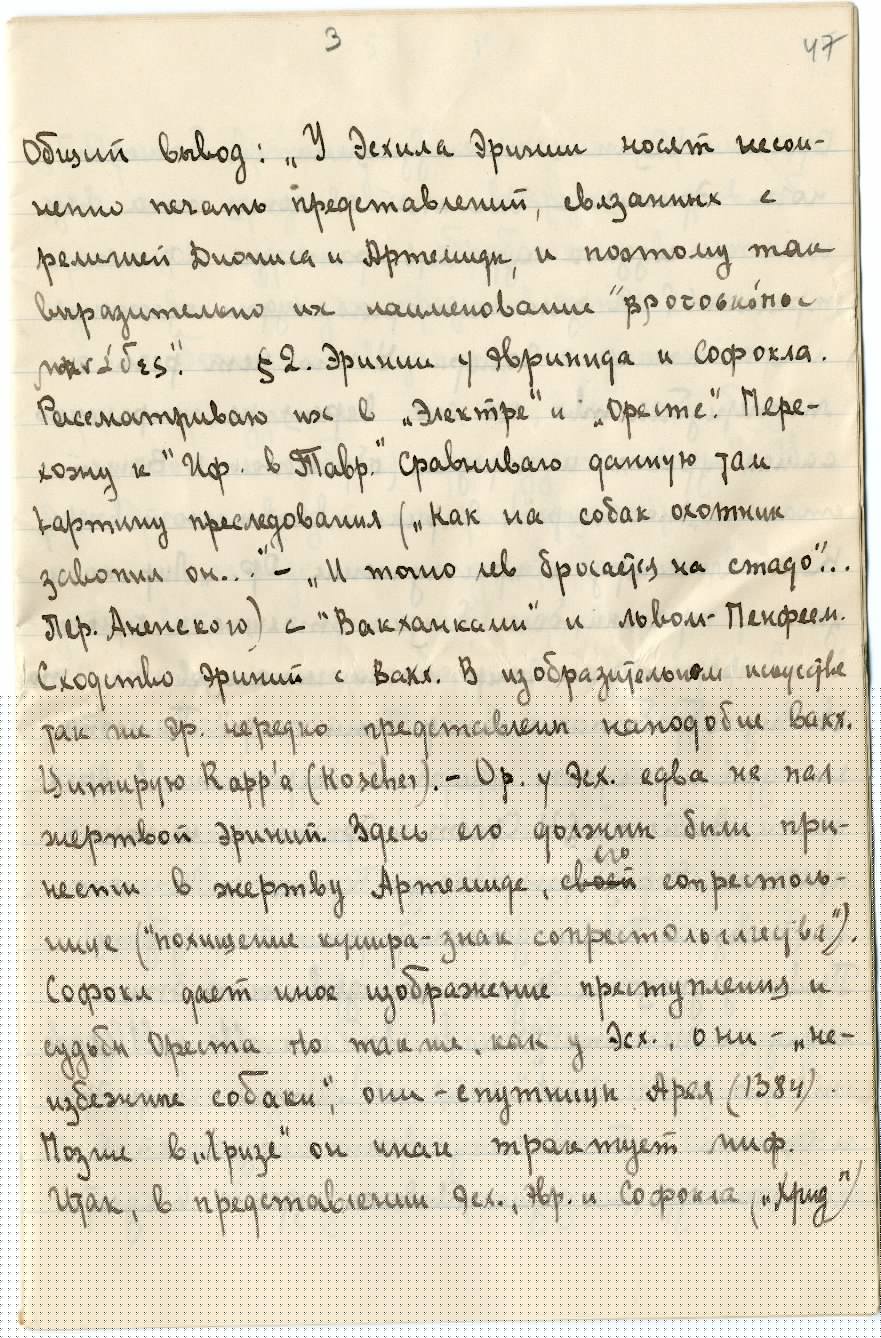 3
47
Общий вывод: „У Эсхила Эринии носят несом-
ненно печать представлений, связанных с
религией Диониса и Артемиды, и поэтому так
выразительно их наименование "βροτοσκόποι
μαινάδες". §2. Эринии у Эврипида и Софокла.
Рассматриваю их в „Электре" и „Оресте". Пере-
хожу к "Иф. в Тавр." Сравниваю данную там
картину преследования („Как на собак охотник
завопил он..." – „И точно лев бросается на стадо"...
Пер. Аненского) с "Вакханками" и львом-Пенфеем.
Сходство Эриний с Вакх. В изобразительном искусстве
так же Эр. нередко представлены наподобие вакх.
Цитирую Rapp'a (Roscher). – Ор. у Эсх. едва не пал
жертвой Эриний. Здесь его должны были при-
нести в жертву Артемиде, его сопрестоль-
нице ("похищение кумира-знак сопрестольничества").
Софокл дает иное изображение преступления и
судьбы Ореста. Но так же, как у Эсх., они – „не-
избежные собаки", они – спутницы Арея (1384).
Позже в „Хризе" он иначе трактует миф.
Итак, в представлении Эсх., Эвр. и Софокла („Хриз")